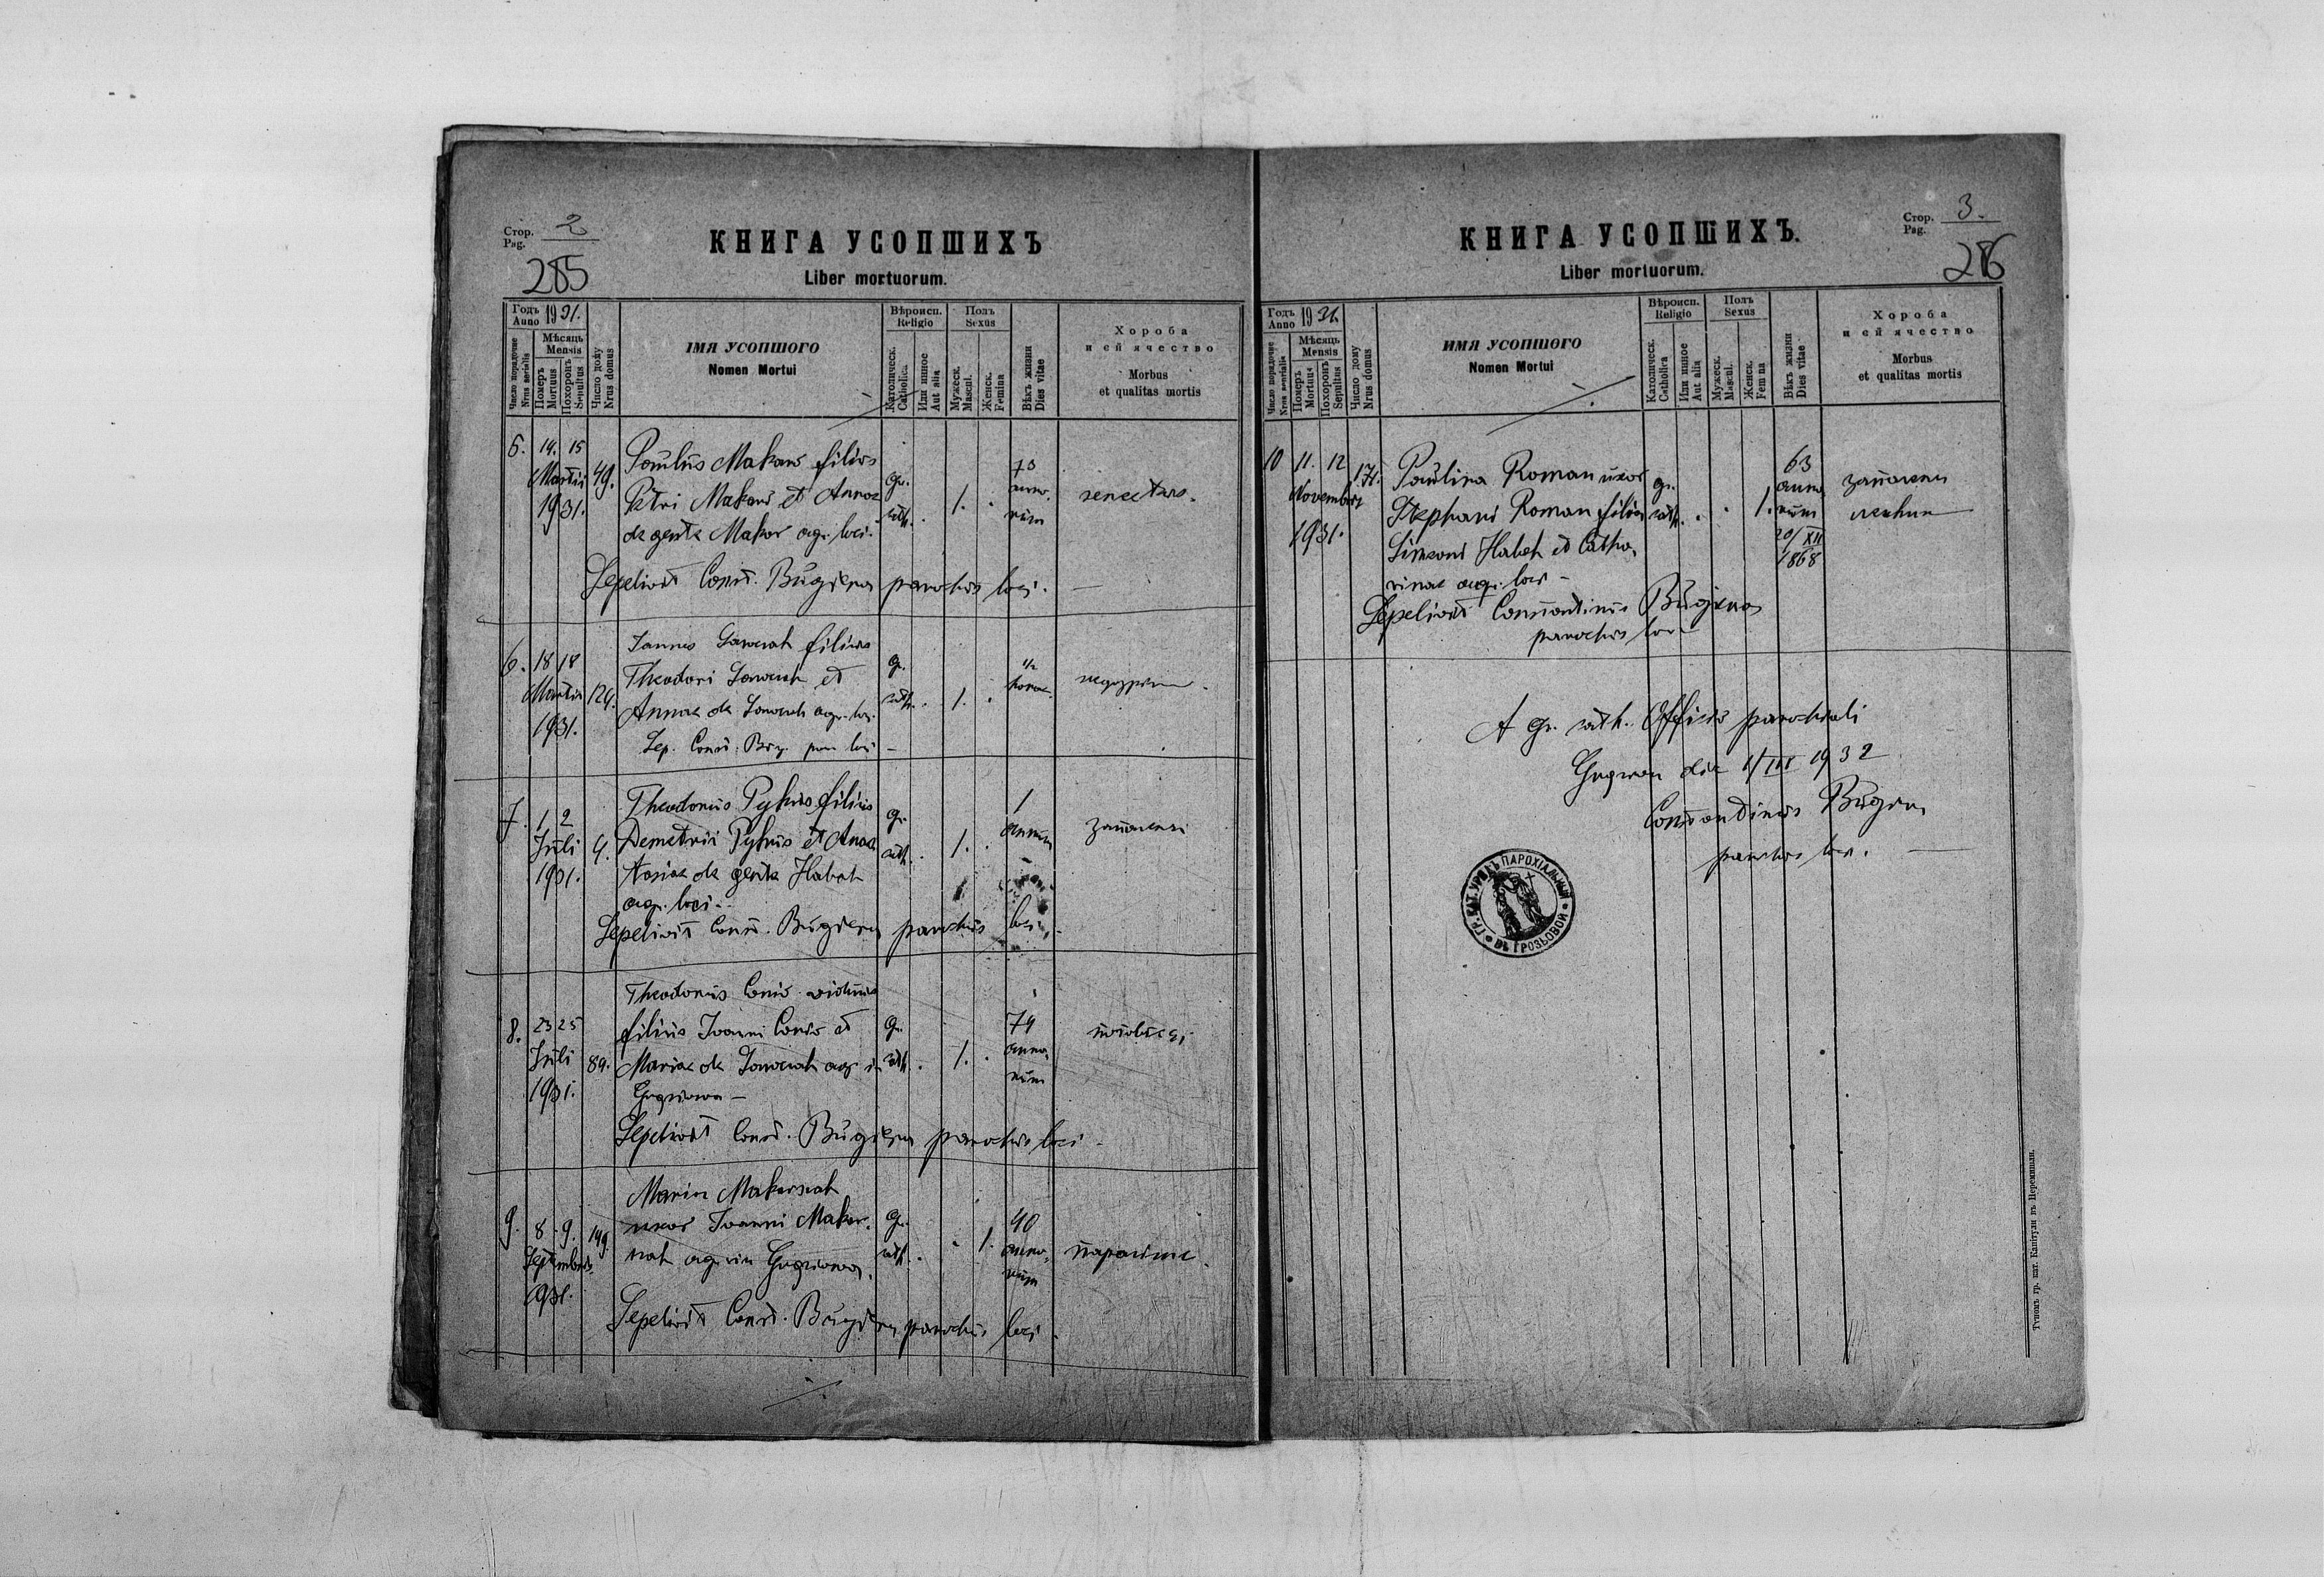 Стор. 2
Pag.
285
КНИГА УСОПШИХЪ
Liber mortuorum.
Годъ 1931.
Anno
Число порядочне
Nrus serialis
Мѣсяць
Mensis
Померъ
Mortuus
Похоронъ
Sepultus
Число дому
Nrus domus
ІМЯ УСОПШОГО
Nomen Mortui
Вѣроисп.
Religio
Католическ.
Catholica
Или инное
Aut alia
Полъ
Sexus
Мужеск.
Mascul.
Женск.
Femina
Вѣкъ жизни
Dies vitae
Хороба
и ей ячество
Morbus
et qualitas mortis
14. 15
Martii
1931.
49.
Paulus Makar filius
Petri Makar et Annae
de gente Makar agr. loci.
gr.
cath.
1.
73
anno-
rum
senectus.
Sepelivit Const. Bugiera parochus loci.
6. 18 18
Martii
1931.
124.
filius
Theodori et
Annae de agr. loci.
gr.
cath.
1.
Sep. Const. Bug. par. loci
7. 1 2
Juli
1931.
4.
Theodorus filius
Demetrii et Anas
tasiae de gente Habat
agr. loci
gr.
cath.
1.
1
annum
запаленє
Sepelivit Const. Bugiera parochus loci
8. 23 25
Juli
1931.
89.
Theodorus viduus
filius Joanni et
Mariae de agr. in
gr.
cath.
1.
74
anno
rum
Sepelivit Const. Bugiera parochus loci
9. 8. 9.
Septembris
1931.
149.
Maria
uxor Joanni Makar
agr. in
gr.
cath.
1.
40
anno
rum
Sepelivit Const. Bugiera parochus loci
Стор. 3.
Pag.
286
КНИГА УСОПШИХЪ.
Liber mortuorum.
Годъ 1931.
Anno
Число порядочне
Nrus serialis
Мѣсяць
Mensis
Померъ
Mortuus
Похоронъ
Sepultus
Число дому
Nrus domus
ИМЯ УСОПШОГО
Nomen Mortui
Вѣроисп.
Religio
Католическ.
Catholica
Или инное
Aut alia
Полъ
Sexus
Мужеск.
Mascul.
Женск.
Femina
Вѣкъ жизни
Dies vitae
Хороба
и ей ячество
Morbus
et qualitas mortis
10 11. 12
Novembris
1931.
171.
Paulina Roman uxor
Stephani Roman filia
Simeoni Habat et Catha
rinae agr. loci
gr.
cath.
1.
63
anno
rum
20/XII
1868
запаленє
легких
Sepelivit Constantinus Bugiera
parochus loci
A gr. cath. Officio parochiali
die 1/III 1932
Constantinus Bugiera
parochus loci.
ГР. КАТ. УРЯДЪ ПАРОХІАЛЬНЫЙ
ВЪ ГРОЗЬОВОЙ
Тупомъ гр. кат. Капітули въ Перемишли.